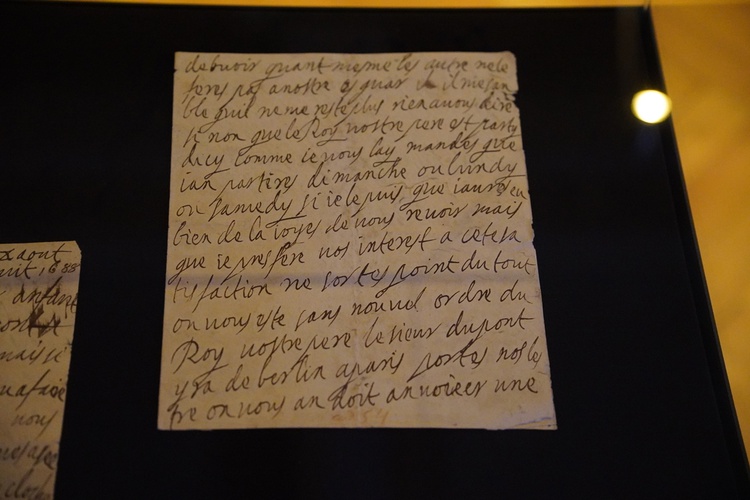 xaout
uit 1688
debuoir quant mesme les autre ne le
feres pas a nostre esguar il me san
ble quil ne me reste plus rien a vous dire
si non que le Roy vostre pere est party
dicy comme ie vous lay mandes que
ian partires dimanche ou lundy
ou samedy si ie le puis que iaures eu
bien de la ioye de vous reuoir mais
que ie presfere vos interest a cete sa
tisfaction ne sortes point du tout
ou vous este sans nouvel ordre du
Roy vostre pere le sieur dupont
yra de berlin a paris portes nos le
tre on vous an doit anvoier une
mais ie
vous